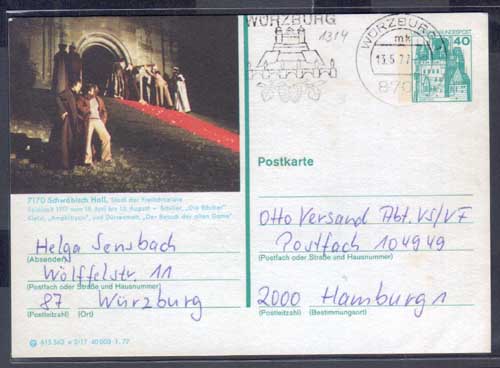 WÜRZBURG
1314
WÜRZBURG
mk
13.5.77
870
BUNDESPOST
40
7170 Schwäbisch Hall, Stadt der Freilichtspiele
Spielzeit 1977 vom 18. Juni bis 13. August – Schiller, „Die Räuber"
Kleist, „Amphitryon", und Dürrenmatt, „Der Besuch der alten Dame"
Postkarte
Helga Sensbach
(Absender)
Wölffelstr. 11
(Postfach oder Straße und Hausnummer)
87 Würzburg
(Postleitzahl) (Ort)
Otto Versand Abt. VS/VF
Postfach 104949
(Postfach oder Straße und Hausnummer)
2000 Hamburg 1
(Postleitzahl) (Bestimmungsort)